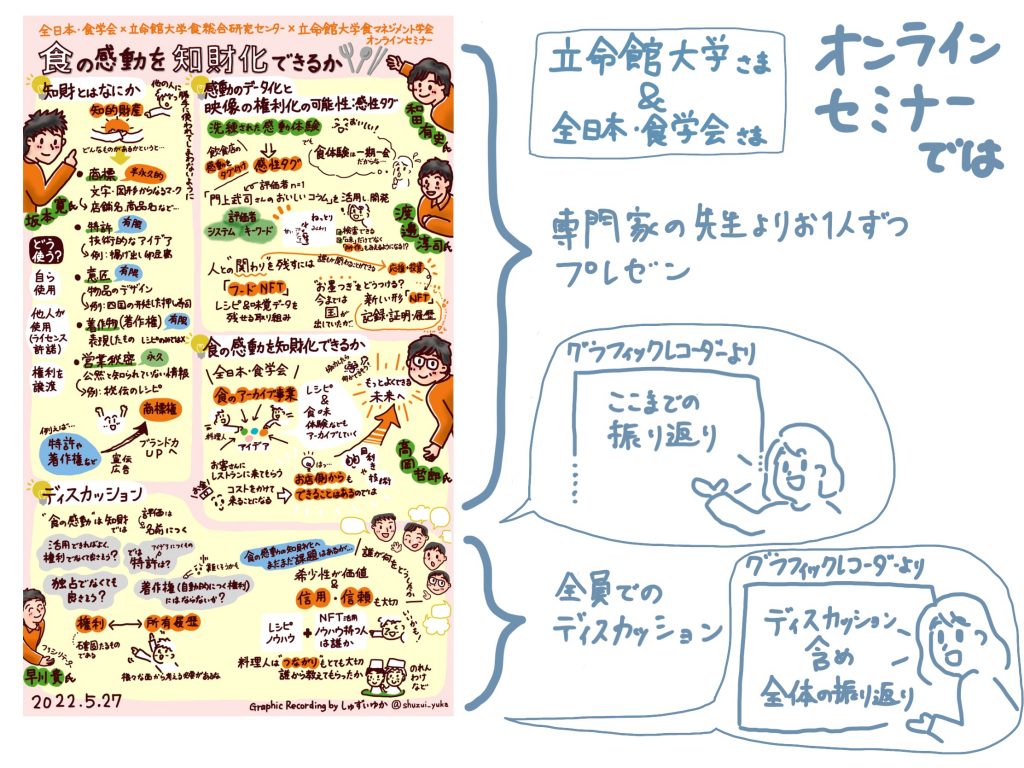 全日本・食学会×立命館大学食総合研究センター×立命館大学食マネジメント学会
オンラインセミナー
食の感動を知財化できるか
知財とはなにか
他の人に
勝手に使われてしまわないように
知的財産
どんなものがあるかというと…
商標 半永久的
文字・図形からなるマーク
店舗名、商品名など…
坂本寛氏
特許 有限
技術的なアイデア
例:揚げ出し卵豆腐
意匠 有限
物品のデザイン
例:四国の形をした押し寿司
著作物(著作権) 有限
表現したもの
営業秘密 永久
公然と知られていない情報
例:秘伝のレシピ
どう使う?
自ら使用
他人が使用
(ライセンス許諾)
権利を譲渡
例えば…
特許や
著作権など
商標権
ブランド力
UPへ
宣伝
広告
感動のデータ化と
映像の権利化の可能性:感性タグ
和田有史氏
洗練された感動体験
おいしい!
飲食店の
感動を
タグ付け
感性タグ
食体験は一期一会
だからな…
評価者n=1
「門上武司さんのおいしいコラム」を活用し開発
渡邊淳司氏
評価者
システム キーワード
ねっとり
検索できる
人との"関わり"を残すには
誰しも関わることができる
応援・投資
「フードNFT」
レシピ&味覚データを
残せる取り組み
"お墨つき"をどうつける?
今までは
国が
出していたが…
新しい形「NFT」
記録・証明・履歴
食の感動を知財化できるか
全日本・食学会
食のアーカイブ事業
料理人
アイデア
レシピ
&
食の味
体験なども
アーカイブしていく
もっとよくできる
未来へ
高岡哲郎氏
お客さんに
レストランに来てもらう
コストをかけて
来ることになる
お店側からも
できることはあるのでは
目利き
や
技術
ディスカッション
"食の感動"は知財
では
評価は
名前につく
活用できればよく、
権利でなくて良さそう?
では
アイデアにつくもの
特許は?
独占でなくても
良さそう?
著作権(自動的につく権利)
にはならないか?
食の感動の知財化へ
まだまだ課題はあるが…
誰が何をしうるか
希少性が価値
&
信用・信頼も大切
権利 ⟷ 所有履歴
石審固たるもの
である
様々な面から考える必要がある
レシピ
ノウハウ
+
NFT活用
ノウハウ持つ人
は誰か
料理人は"つながり"もとても大切
誰から教えてもらったか
のれん
わけ
など
早川貴氏
2022.5.27
Graphic Recording by しゅずいゆか @shuzui_yuka
オンライン
セミナー
では
立命館大学さま
&
全日本・食学会さま
専門家の先生よりお1人ずつ
プレゼン
グラフィックレコーダーより
ここまでの
振り返り
全員での
ディスカッション
グラフィックレコーダーより
ディスカッション
含め
全体の振り返り